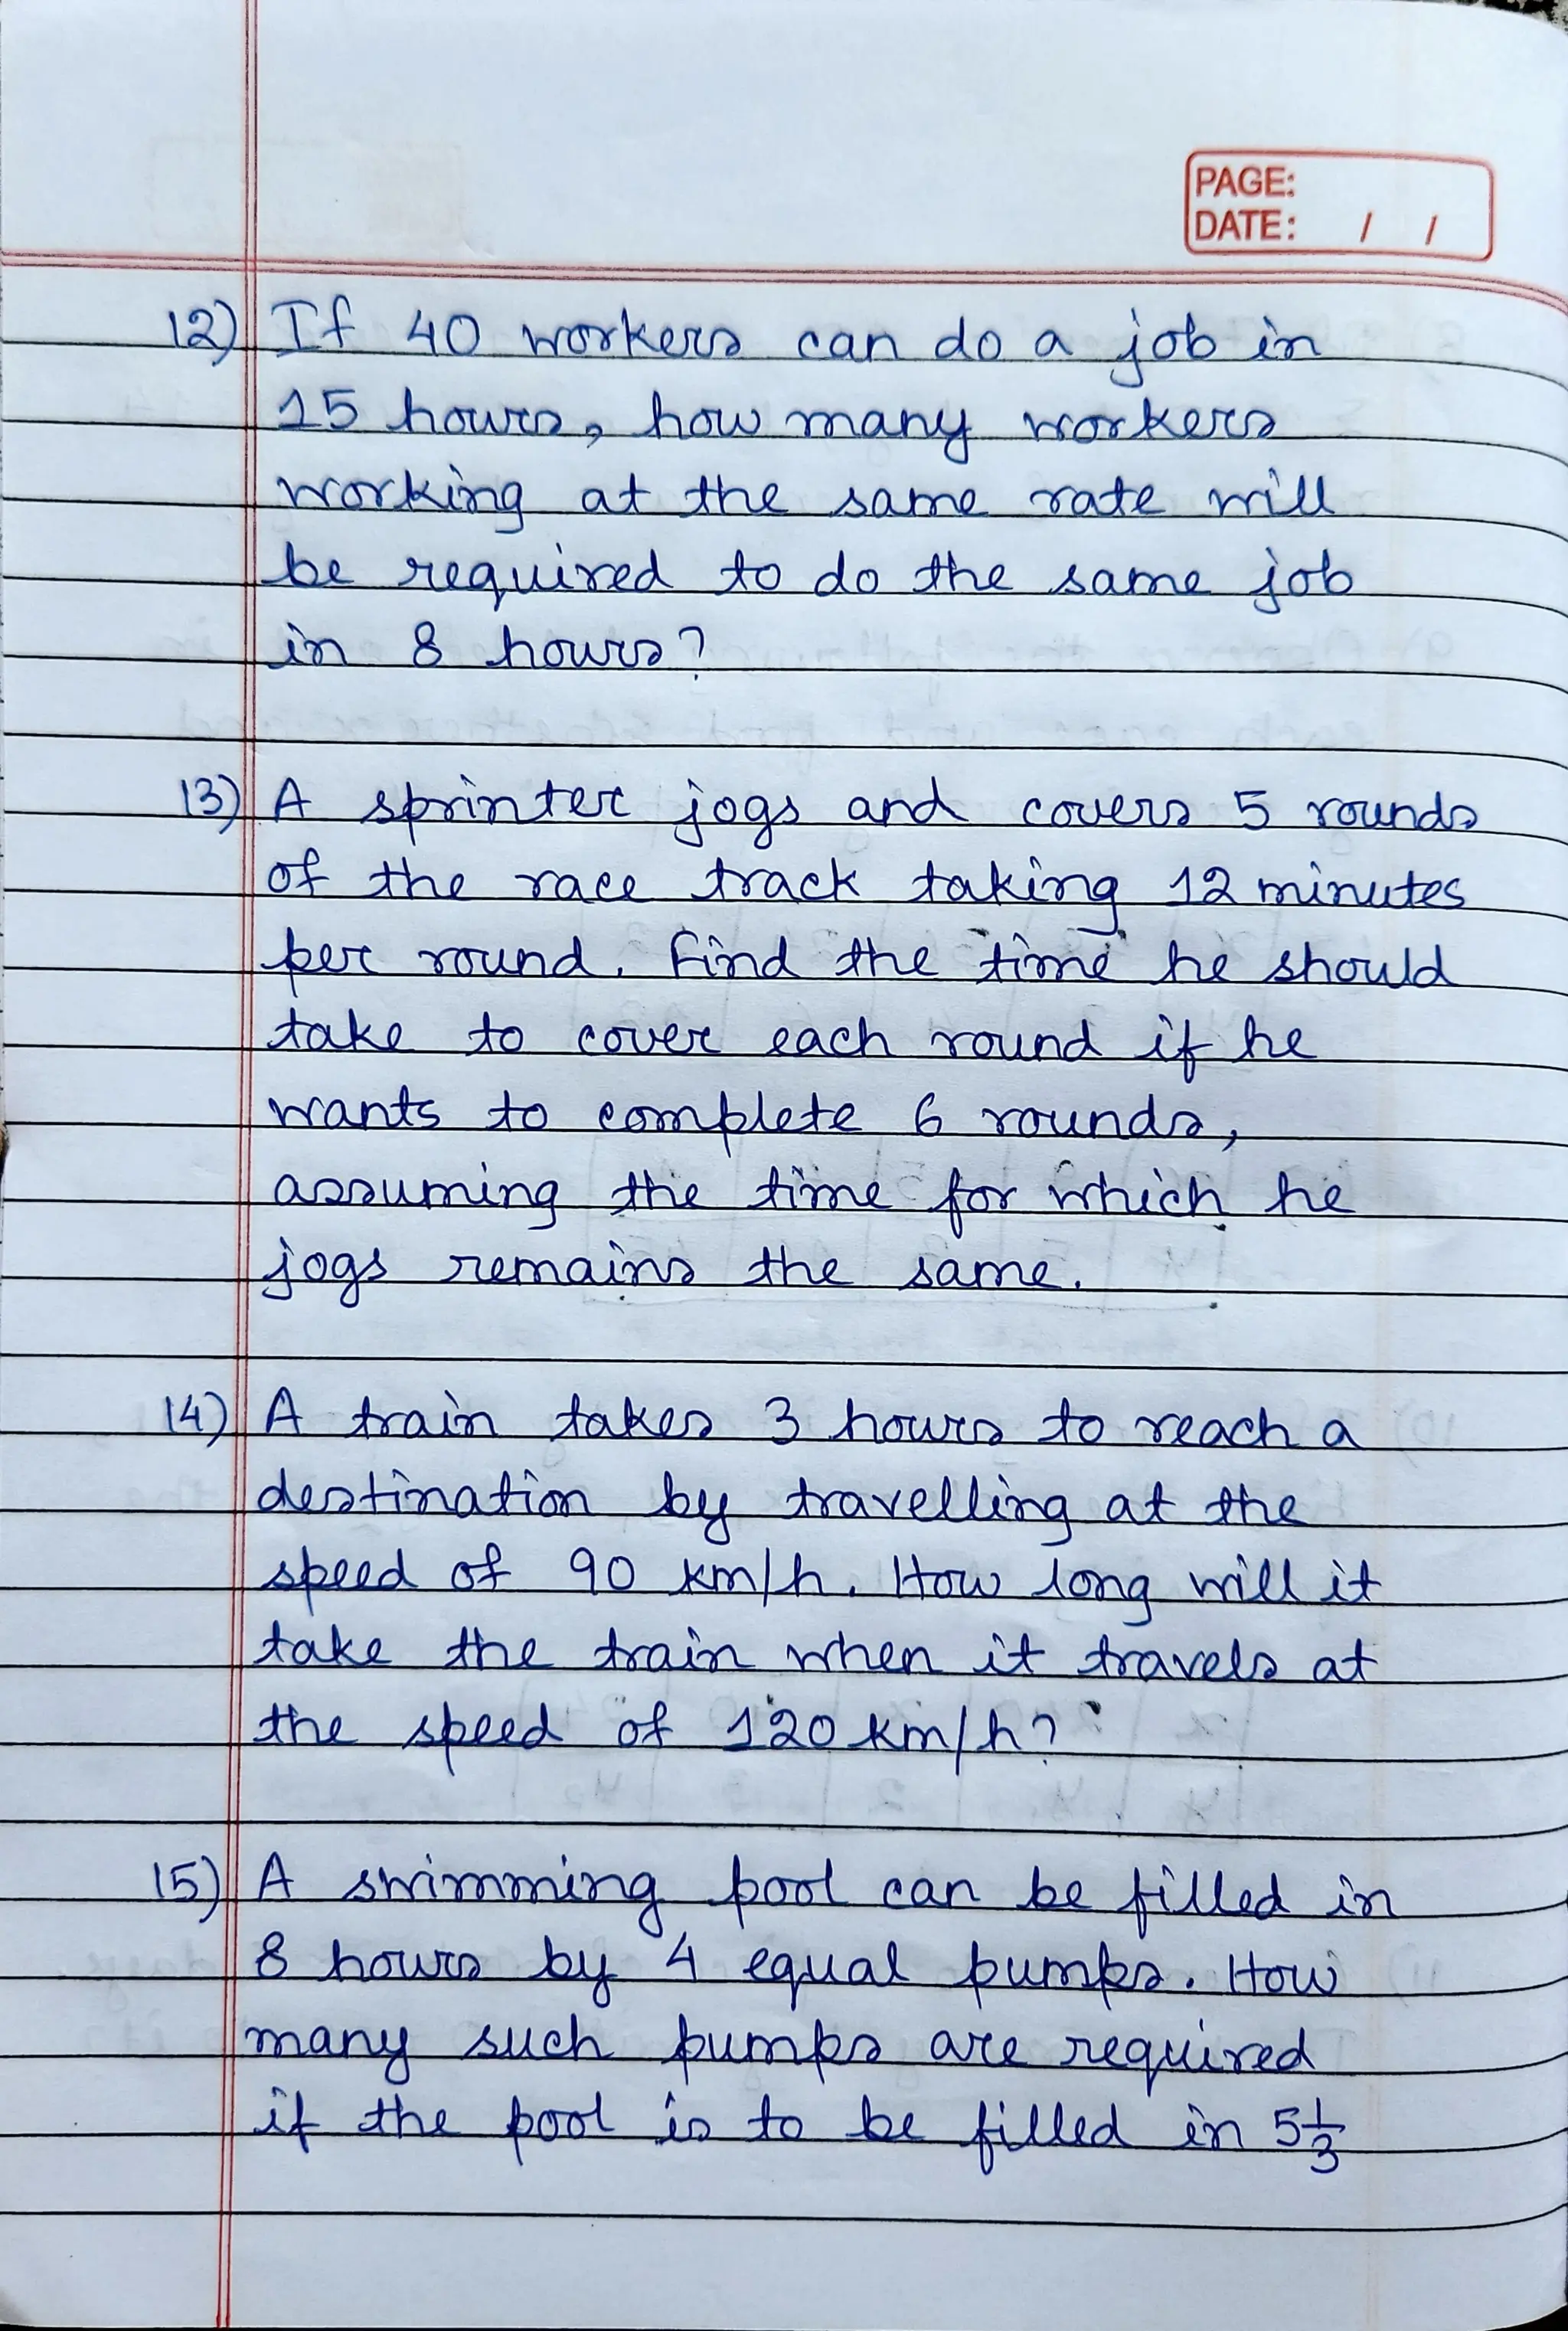 PAGE:
DATE: / /
12) If 40 workers can do a job in
15 hours, how many workers
working at the same rate will
be required to do the same job
in 8 hours?
13) A sprinter jogs and covers 5 rounds
of the race track taking 12 minutes
per round. Find the time he should
take to cover each round if he
wants to complete 6 rounds,
assuming the time for which he
jogs remains the same.
14) A train takes 3 hours to reach a
destination by travelling at the
speed of 90 km/h. How long will it
take the train when it travels at
the speed of 120 km/h?
15) A swimming pool can be filled in
8 hours by 4 equal pumps. How
many such pumps are required
if the pool is to be filled in 5 1/3